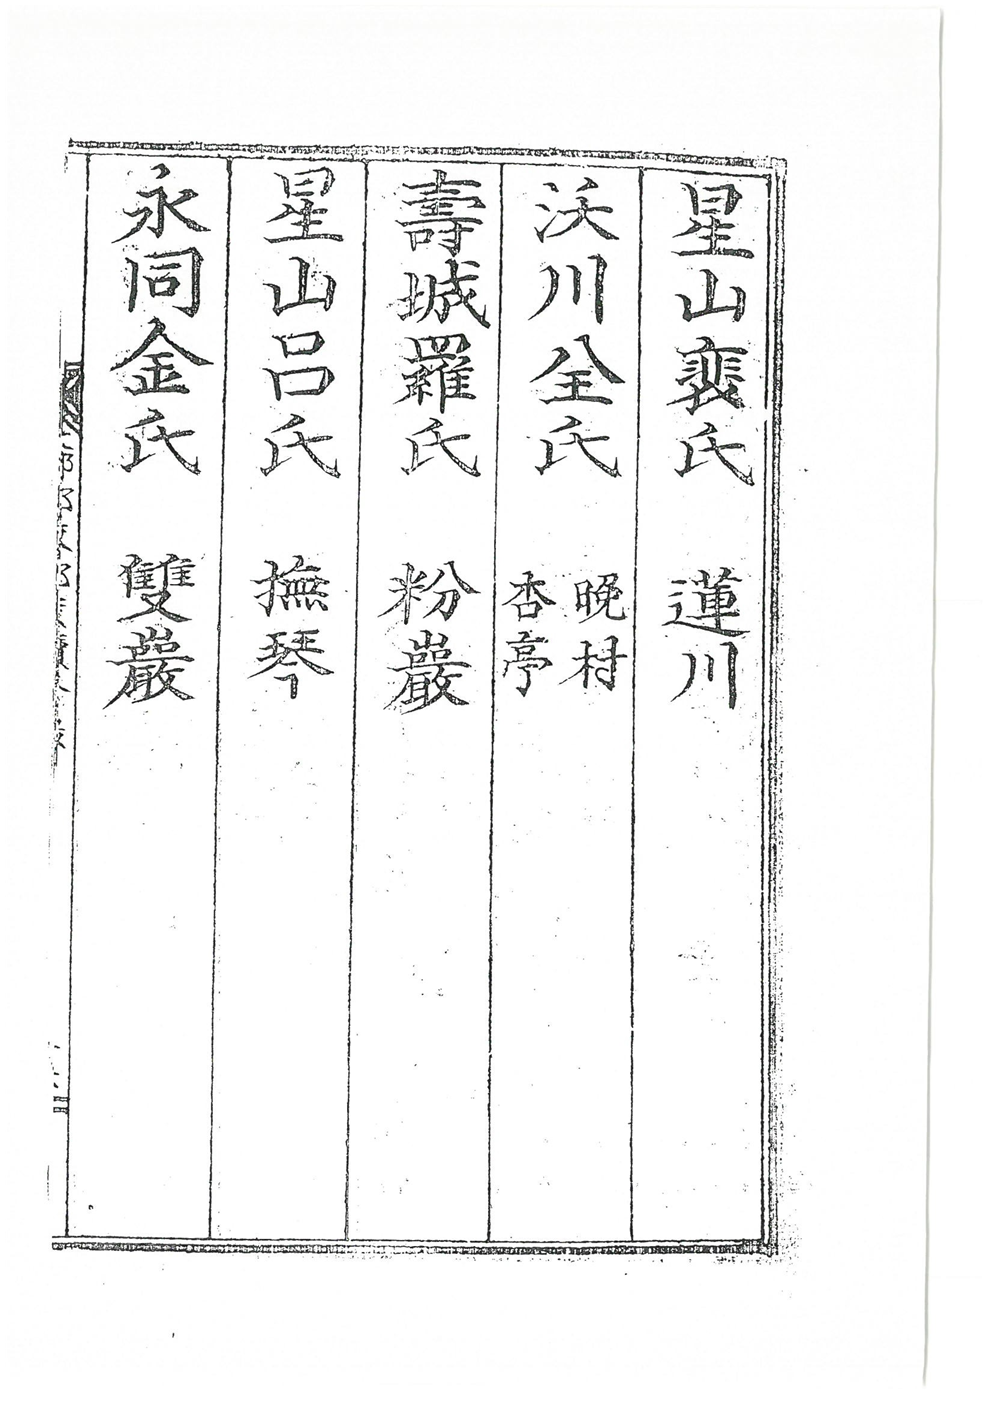 星山裵氏 蓮川
沃川全氏 晩村
杏亭
壽城羅氏 粉巖
星山呂氏 撫琴
永同金氏 雙巖